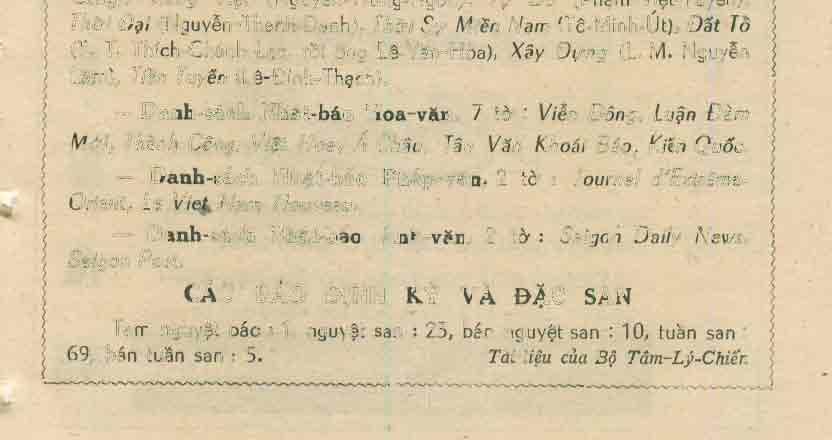 Thời Đại (Nguyễn-Thanh-Danh), Thời Sự Miền Nam (Tô-Minh-Út), Đất Tổ
(T. T. Thích-Chánh-Lạc, rồi ông Lê-Văn-Hòa), Xây Dựng (L. M. Nguyễn
Lãm), Tiền Tuyến (Lê-Đình-Thạch).
— Danh-sách Nhật-báo Hoa-văn, 7 tờ : Viễn Đông, Luận Đàm
Mới, Thành Công, Việt Hoa, Á Châu, Tân Văn Khoái Báo, Kiến Quốc.
— Danh-sách Nhật-báo Pháp-văn, 2 tờ : Journal d'Extrême-
Orient, Le Viet Nam Nouveau.
— Danh-sách Nhật-báo Anh-văn, 2 tờ : Saigon Daily News,
Saigon Post.
CÁC BÁO ĐỊNH KỲ VÀ ĐẶC SAN
Tam nguyệt 1, nguyệt san : 23, bán nguyệt san : 10, tuần san :
69, bán tuần san : 5. Tài liệu của Bộ Tâm-Lý-Chiến.